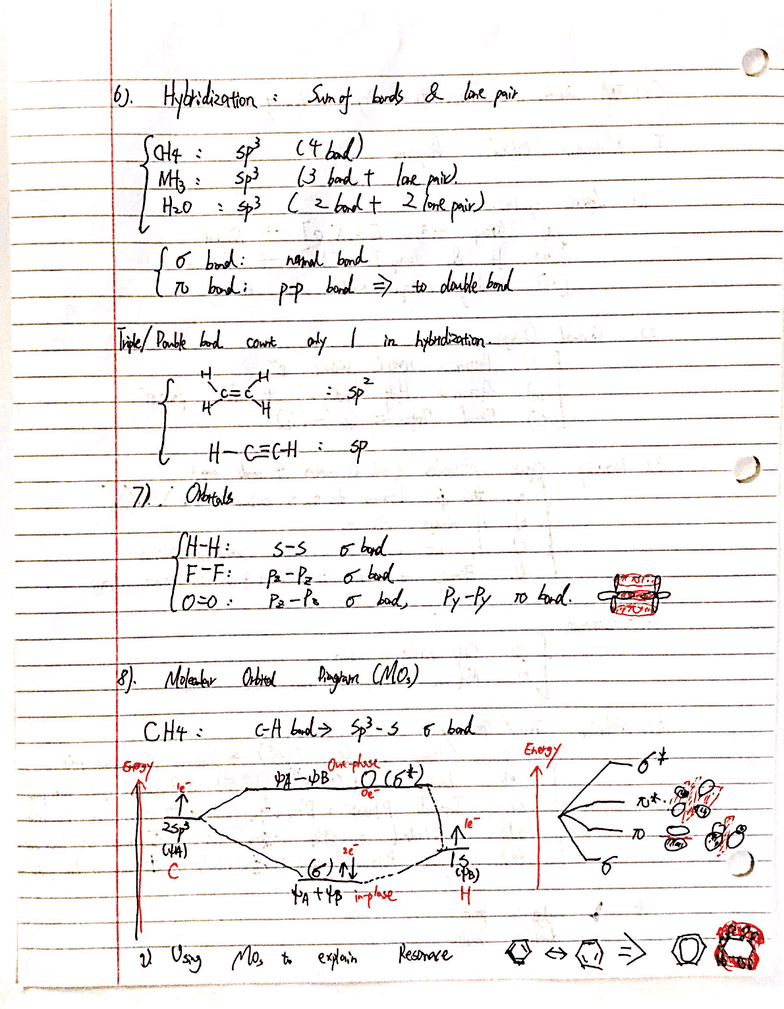 6). Hybridization : Sum of bonds & lone pair
CH4 : sp³ (4 bond)
NH3 : sp³ (3 bond + lone pair).
H2O : sp³ (2 bond + 2 lone pair)
σ bond: normal bond
π bond: p-p bond ⇒ to double bond
Triple/Double bond count only 1 in hybridization.
H H
C=C : sp²
H H
H-C≡C-H : sp
7). Orbitals
H-H : s-s σ bond
F-F : Pz-Pz σ bond
O=O : Pz-Pz σ bond, Py-Py π bond.
8). Molecular Orbital Diagram (MOs)
CH4 : C-H bond → sp³-s σ bond
Energy 1e⁻ ψA-ψB O (σ*) 0e⁻ Energy σ*
2sp³ (ψA) C 1e⁻ 1s (ψB) H π*
(σ) 2e⁻ π
ψA+ψB in-phase σ
2) Using MOs to explain Resonace ↔ ⇒